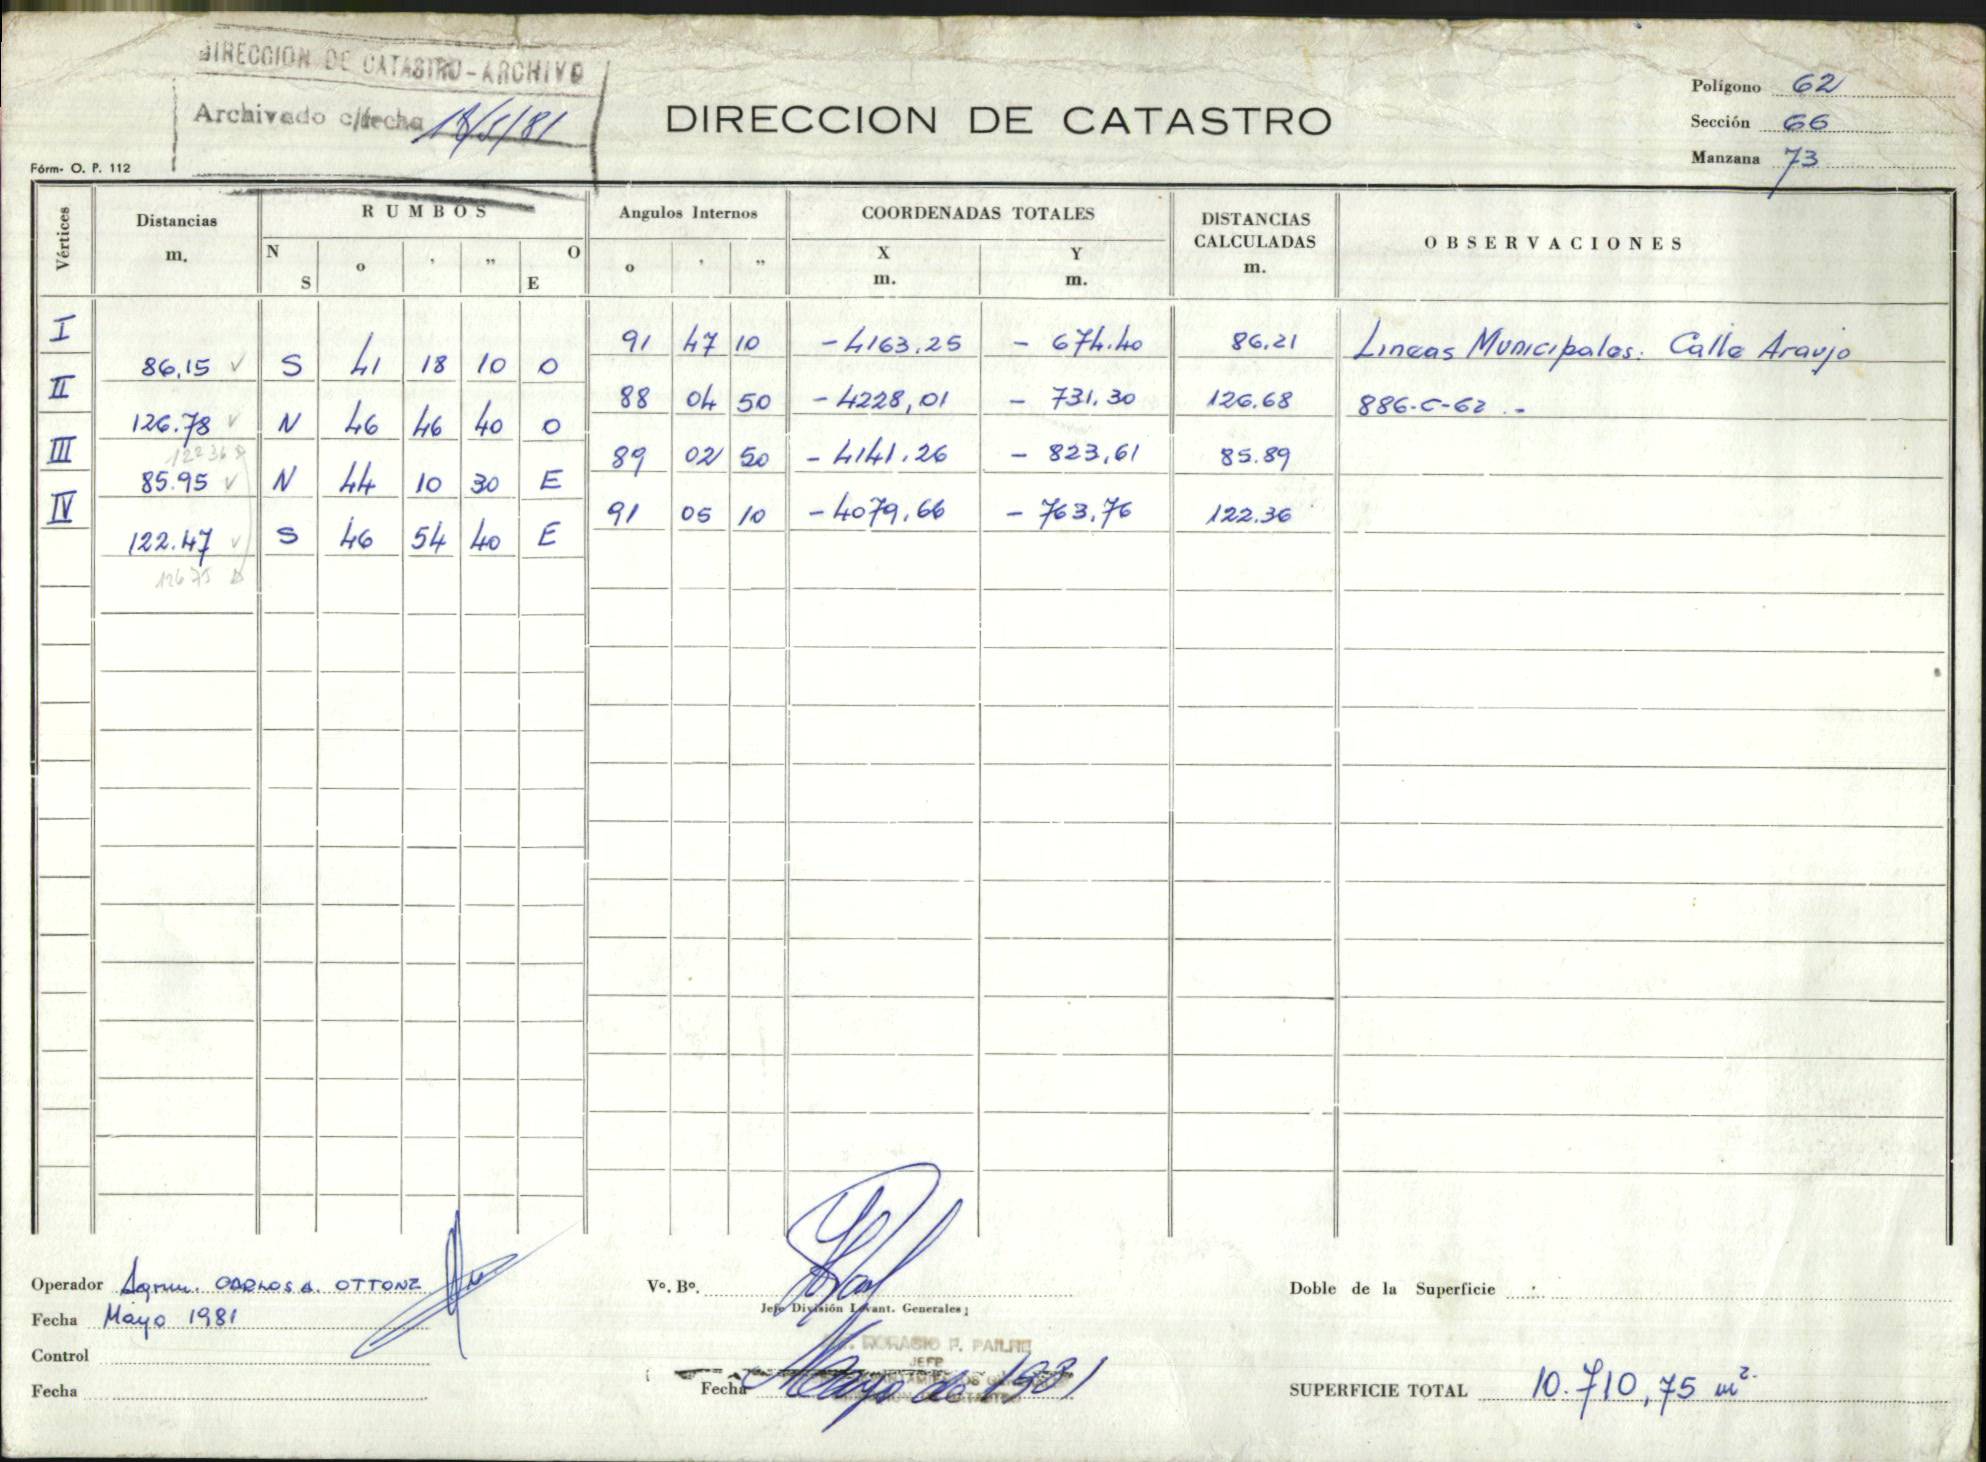 DIRECCION DE CATASTRO-ARCHIVO
Archivado c/fecha 18/5/81
DIRECCION DE CATASTRO
Polígono 62
Sección 66
Manzana 73
Fórm- O. P. 112
Vértices
Distancias m.
RUMBOS
N S ° ' " O E
Angulos Internos
° ' "
COORDENADAS TOTALES
X m. Y m.
DISTANCIAS CALCULADAS m.
OBSERVACIONES
I 91 47 10 -4163,25 - 674.40 86,21 Lineas Municipales: Calle Araujo
86,15 S 41 18 10 O
II 88 04 50 -4228,01 - 731.30 126.68 886-C-62.-
126.78 N 46 46 40 O
122 36
III 89 02 50 -4141.26 - 823,61 85.89
85.95 N 44 10 30 E
IV 91 05 10 -4079,66 - 763,76 122.36
122.47 S 46 54 40 E
126 75
Operador Agrim. CARLOS A. OTTONE
Fecha Mayo 1981
Control
Fecha
Vº. Bº.
Jefe División Levant. Generales
HORACIO F.
JEFE
Fecha Mayo de 1981
Doble de la Superficie
SUPERFICIE TOTAL 10.710,75 m²